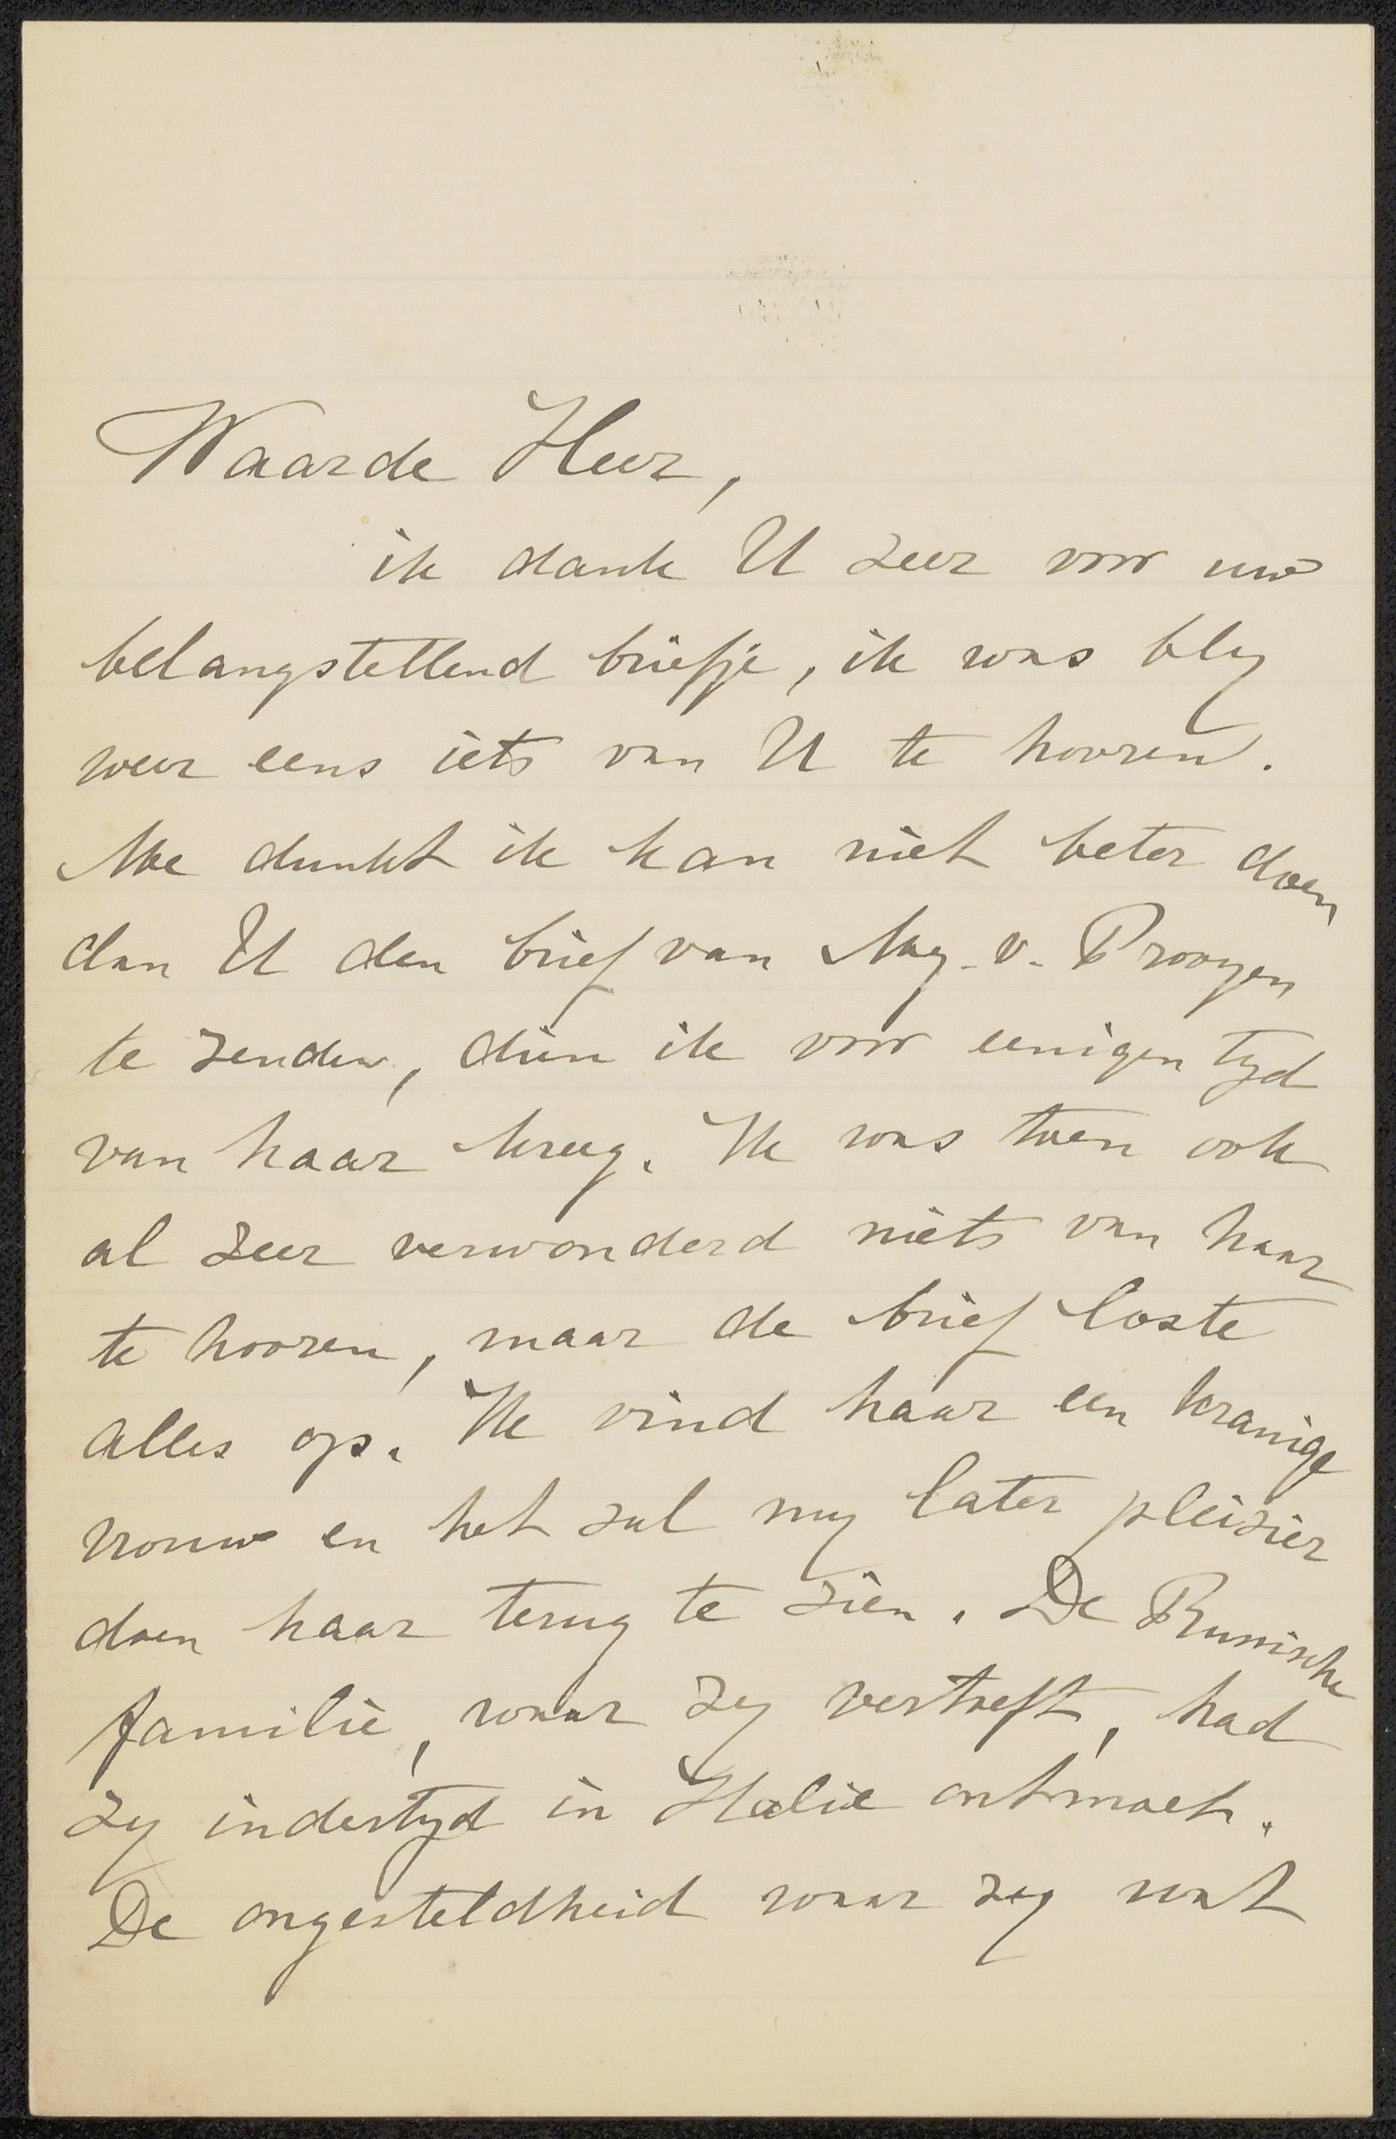 Waarde Heer,
ik dank U zeer voor uw
belangstellend briefje, ik was bly
weer eens iets van U te hooren.
Me dunkt ik kan niet beter doen
dan U den brief van Mej. v. Prooyen
te zenden, dien ik voor eenigen tyd
van haar kreeg. Ik was toen ook
al zeer verwonderd niets van haar
te hooren, maar de brief loste
alles op. Ik vind haar een kranige
vrouw en het zal my later pleizier
doen haar terug te zien. De Russische
familie, waar zy vertoeft, had
zy indertyd in Italië ontmoet.
De ongesteldheid waar zy wat